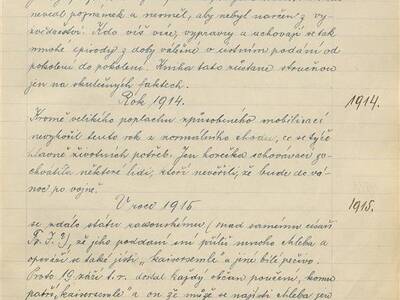 nával poznámek a nesměl, aby nebyl nařčen z vy-
zvědačství. Kdo víš více, vypravuj a uchovají se tak
mnohé episody z doby válečné v ústním podání od
pokolení do pokolení. Kniha tato zůstane stručnou
jen na skutečných faktech.
Rok 1914.
1914.
Kromě velikého poplachu způsobeného mobilisací
nevybočil tento rok z normálního chodu, co se týče
hlavně životních potřeb. Jen horečka schovávací za-
chvátila některé lidi, kteří nevěřili, že bude do vá-
noc po vojně.
V roce 1915
1915.
se zdálo státu rakouskému (snad samému císaři
Fr. J. I.), že jeho poddaní sní příliš mnoho chleba a
že také jisti "kaisersemle" a jiné bílé pečivo.
Proto 19. září t. r. dostal každý občan poučení, komu
patří "kaisersemle" a on že může se najísti chleba jen